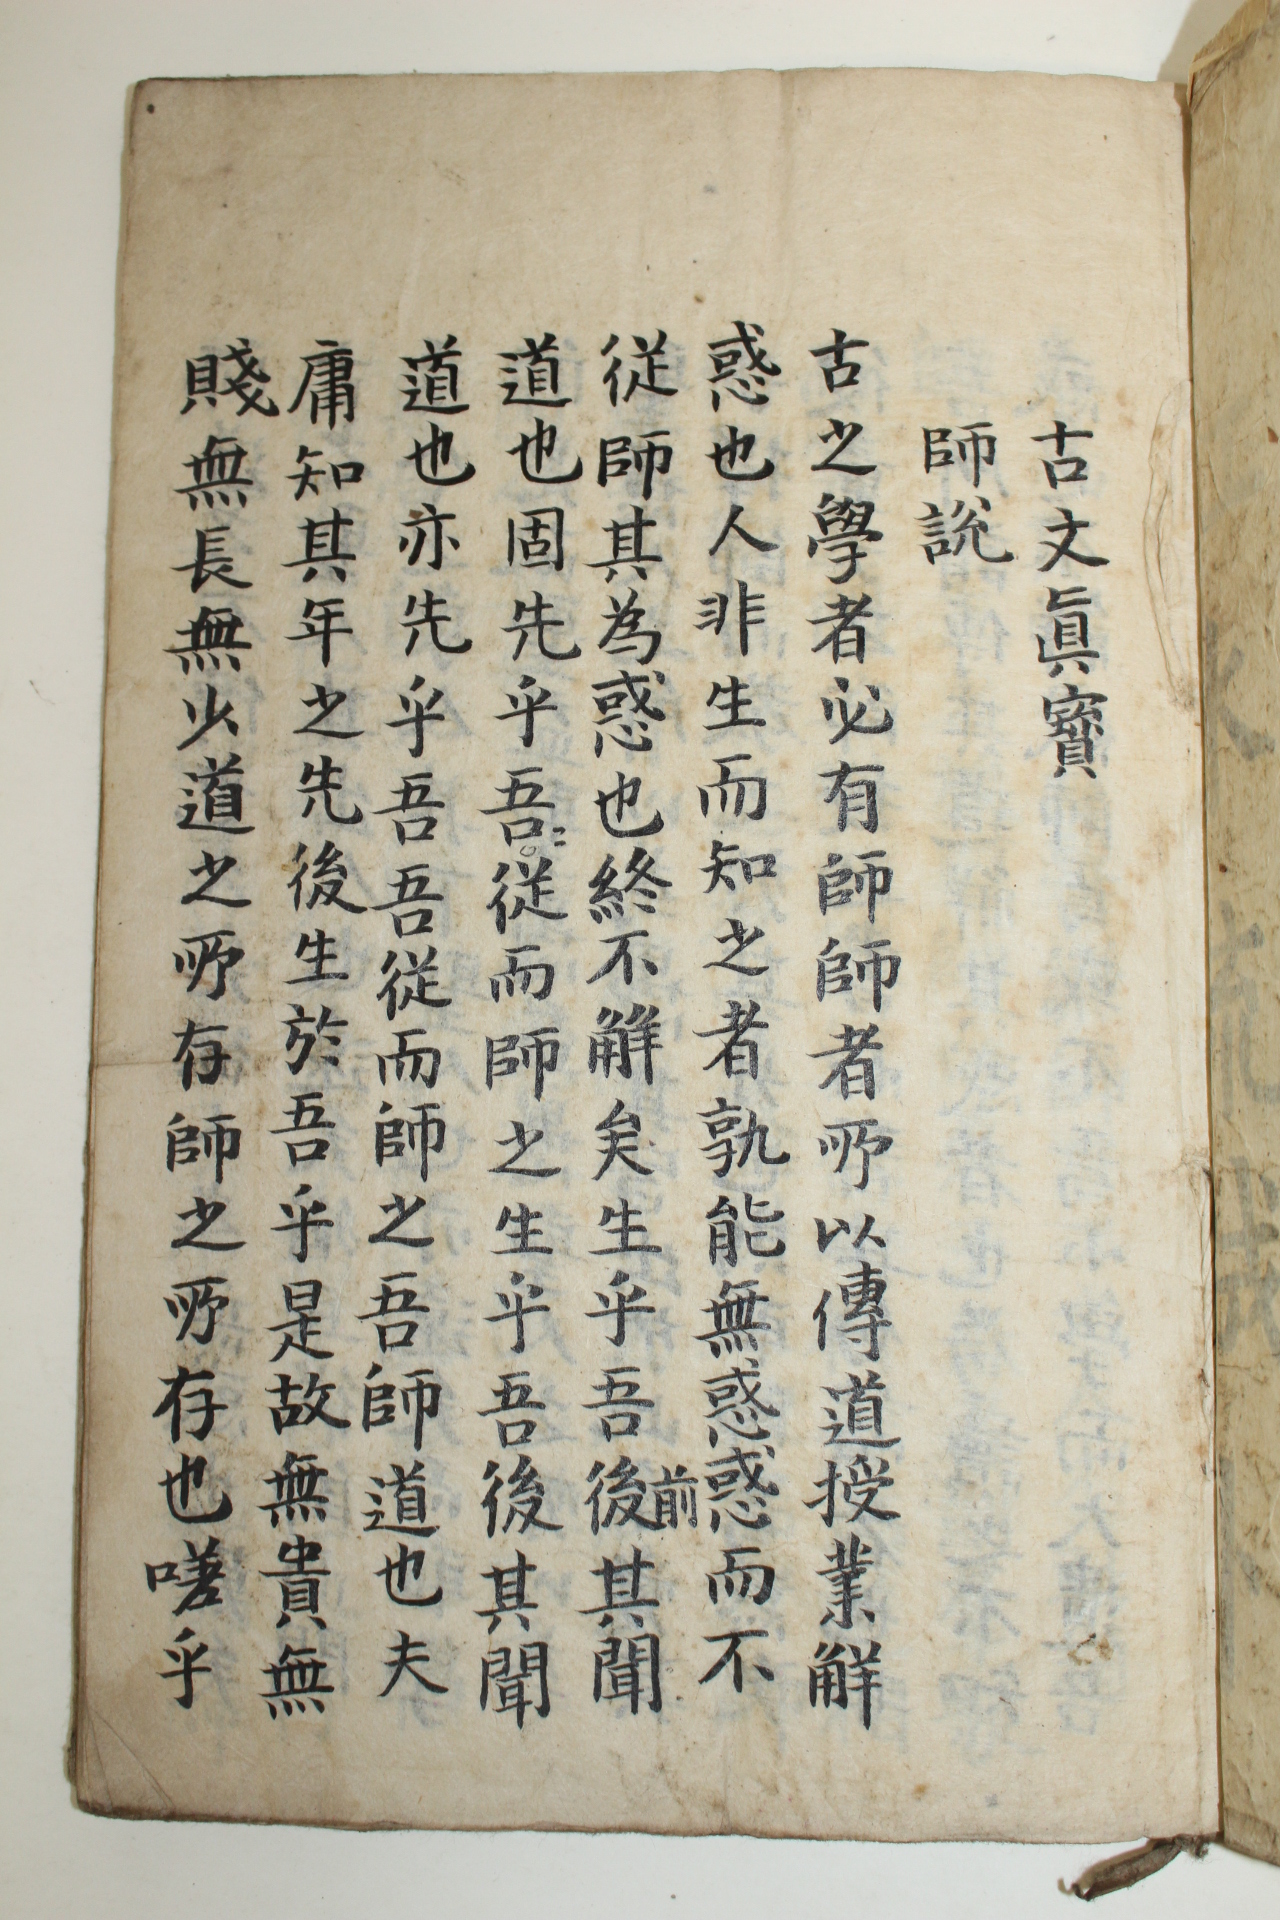 古文眞寶
師說
古之學者必有師師者所以傳道授業解
惑也人非生而知之者孰能無惑惑而不
從師其為惑也終不解矣生乎吾後其聞
前
道也固先乎吾〻從而師之生乎吾後其聞
道也亦先乎吾吾從而師之吾師道也夫
庸知其年之先後生於吾乎是故無貴無
賤無長無少道之所存師之所存也嗟乎